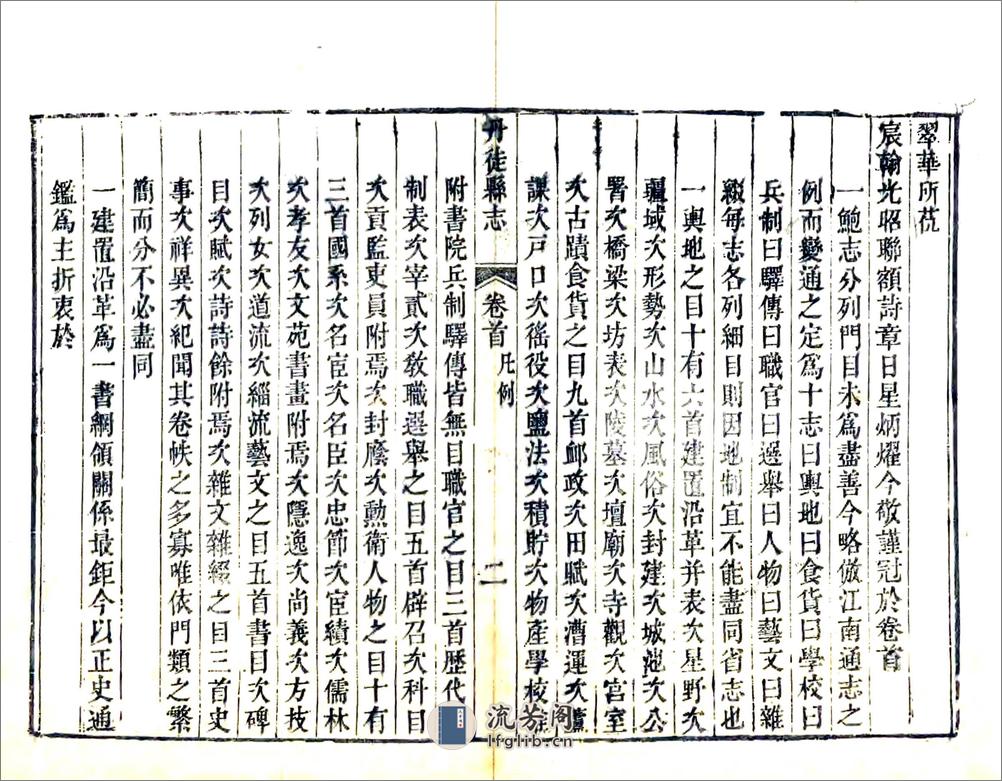 翠華所莅
宸翰光昭聯額詩章日星炳燿今敬謹冠於卷首
一鮑志分列門目未爲盡善今略倣江南通志之
例而變通之定爲十志曰輿地曰食貨曰學校曰
兵制曰驛傳曰職官曰選舉曰人物曰藝文曰雜
綴每志各列細目則因地制宜不能盡同省志也
一輿地之目十有六首建置沿革并表次星野次
疆域次形勢次山水次風俗次封建次城池次公
署次橋梁次坊表次陵墓次壇廟次寺觀次宮室
次古蹟食貨之目九首卹政次田賦次漕運次蘆
課次戸口次徭役次鹽法次積貯次物産學校
丹徒縣志
卷首
凡例
二
附書院兵制驛傳皆無目職官之目三首歷代
制表次宰貳次敎職選舉之目五首辟召次科目
次貢監吏員附焉次封廕次勲衛人物之目十有
三首國系次名宦次名臣次忠節次宦績次儒林
次孝友次文苑書畫附焉次隱逸次尚義次方技
次列女次道流次緇流藝文之目五首書目次碑
目次賦次詩詩餘附焉次雜文雜綴之目三首史
事次祥異次紀聞其卷帙之多寡唯依門類之繁
簡而分不必盡同
一建置沿革爲一書綱領關係最鉅今以正史通
鑑爲主折衷於
流芳阁
lfglib.cn